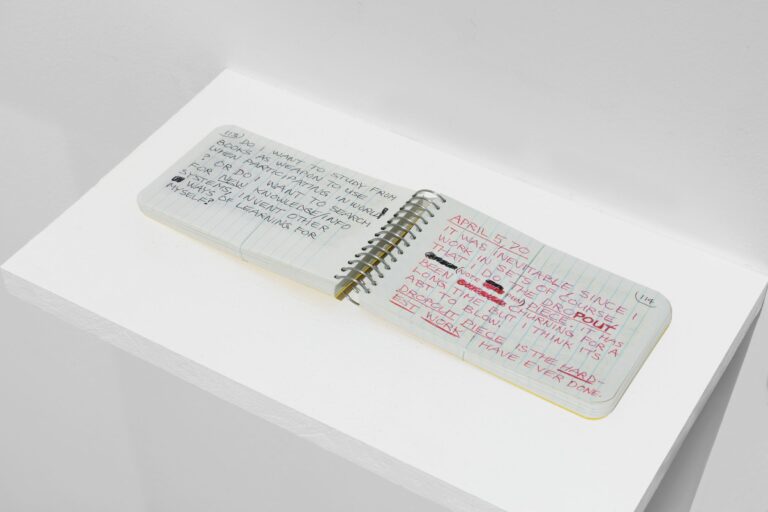 113) DO I WANT TO STUDY FROM
BOOKS AS WEAPON TO USE
WHEN PARTICIPATING IN WORLD
? OR DO I WANT TO SEARCH
FOR NEW KNOWLEDGE/INFO
SYSTEMS, INVENT OTHER
WAYS OF LEARNING FOR
MYSELF?
114
APRIL 5, 70
IT WAS INEVITABLE SINCE I
WORK IN SETS OF COURSE
THAT I DO THE DROPOUT
(NOTE PUN) PIECE. IT HAS
BEEN CHURNING FOR A
LONG TIME BUT I THINK IT'S
ABT TO BLOW.
DROPOUT PIECE IS THE HARD-
EST WORK I HAVE EVER DONE.